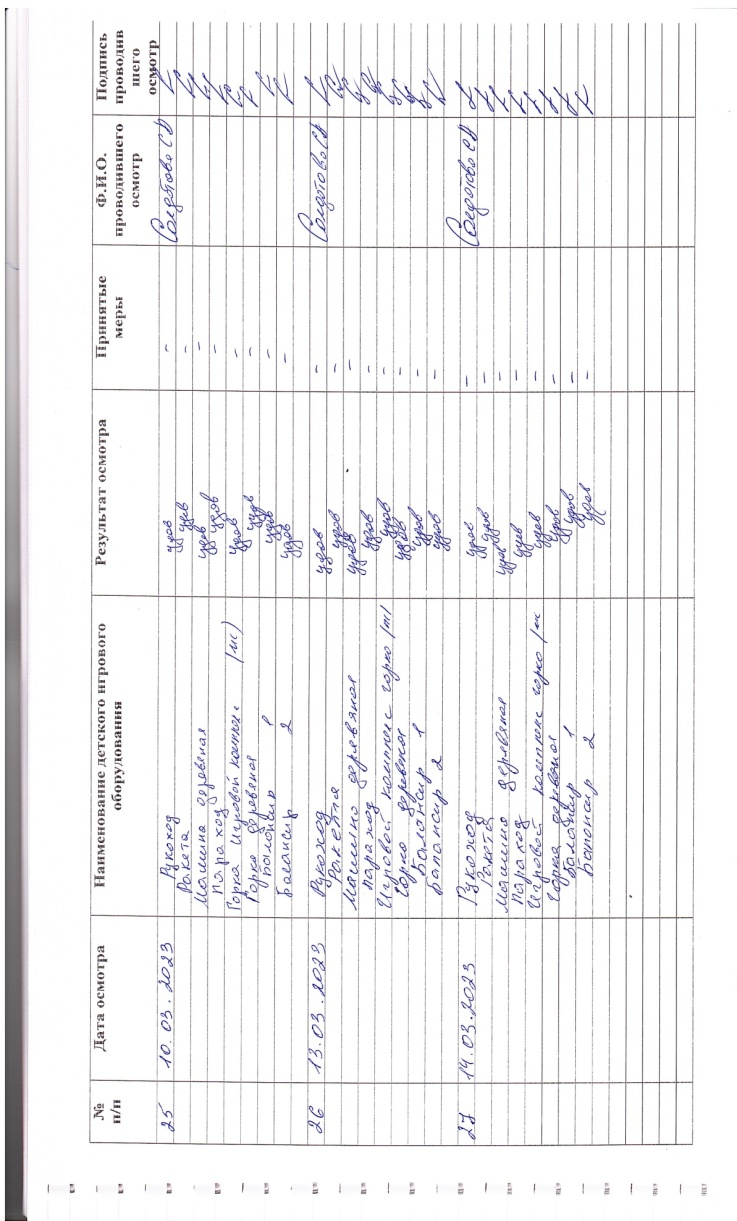 № п/п Дата осмотра Наименование детского игрового оборудования Результат осмотра Принятые меры Ф.И.О. проводившего осмотр Подпись проводив шего осмотр
25 10.03.2023 Рукоход удов - Солдатова СД
Ракета удов -
Машина деревеная удов -
параход удов -
Горка Игровой компл. (мс) удов -
Горка деревеная удов -
Балансир 1 удов -
Балансир 2 удов -
26 13.03.2023 Рукоход удов - Солдатова СД
Ракета удов -
Машина деревяная удов -
параход удов -
Игровой комплекс горка /м/ удов -
Горка деревеная удов -
Балансир 1 удов -
Балансир 2 удов -
27 14.03.2023 Рукоход удов - Солдатова СД
Ракета удов -
Машина деревяная удов -
параход удов -
Игровой комплекс горка /м удов -
Горка деревеная удов -
Балансир 1 удов -
Балансир 2 удов -